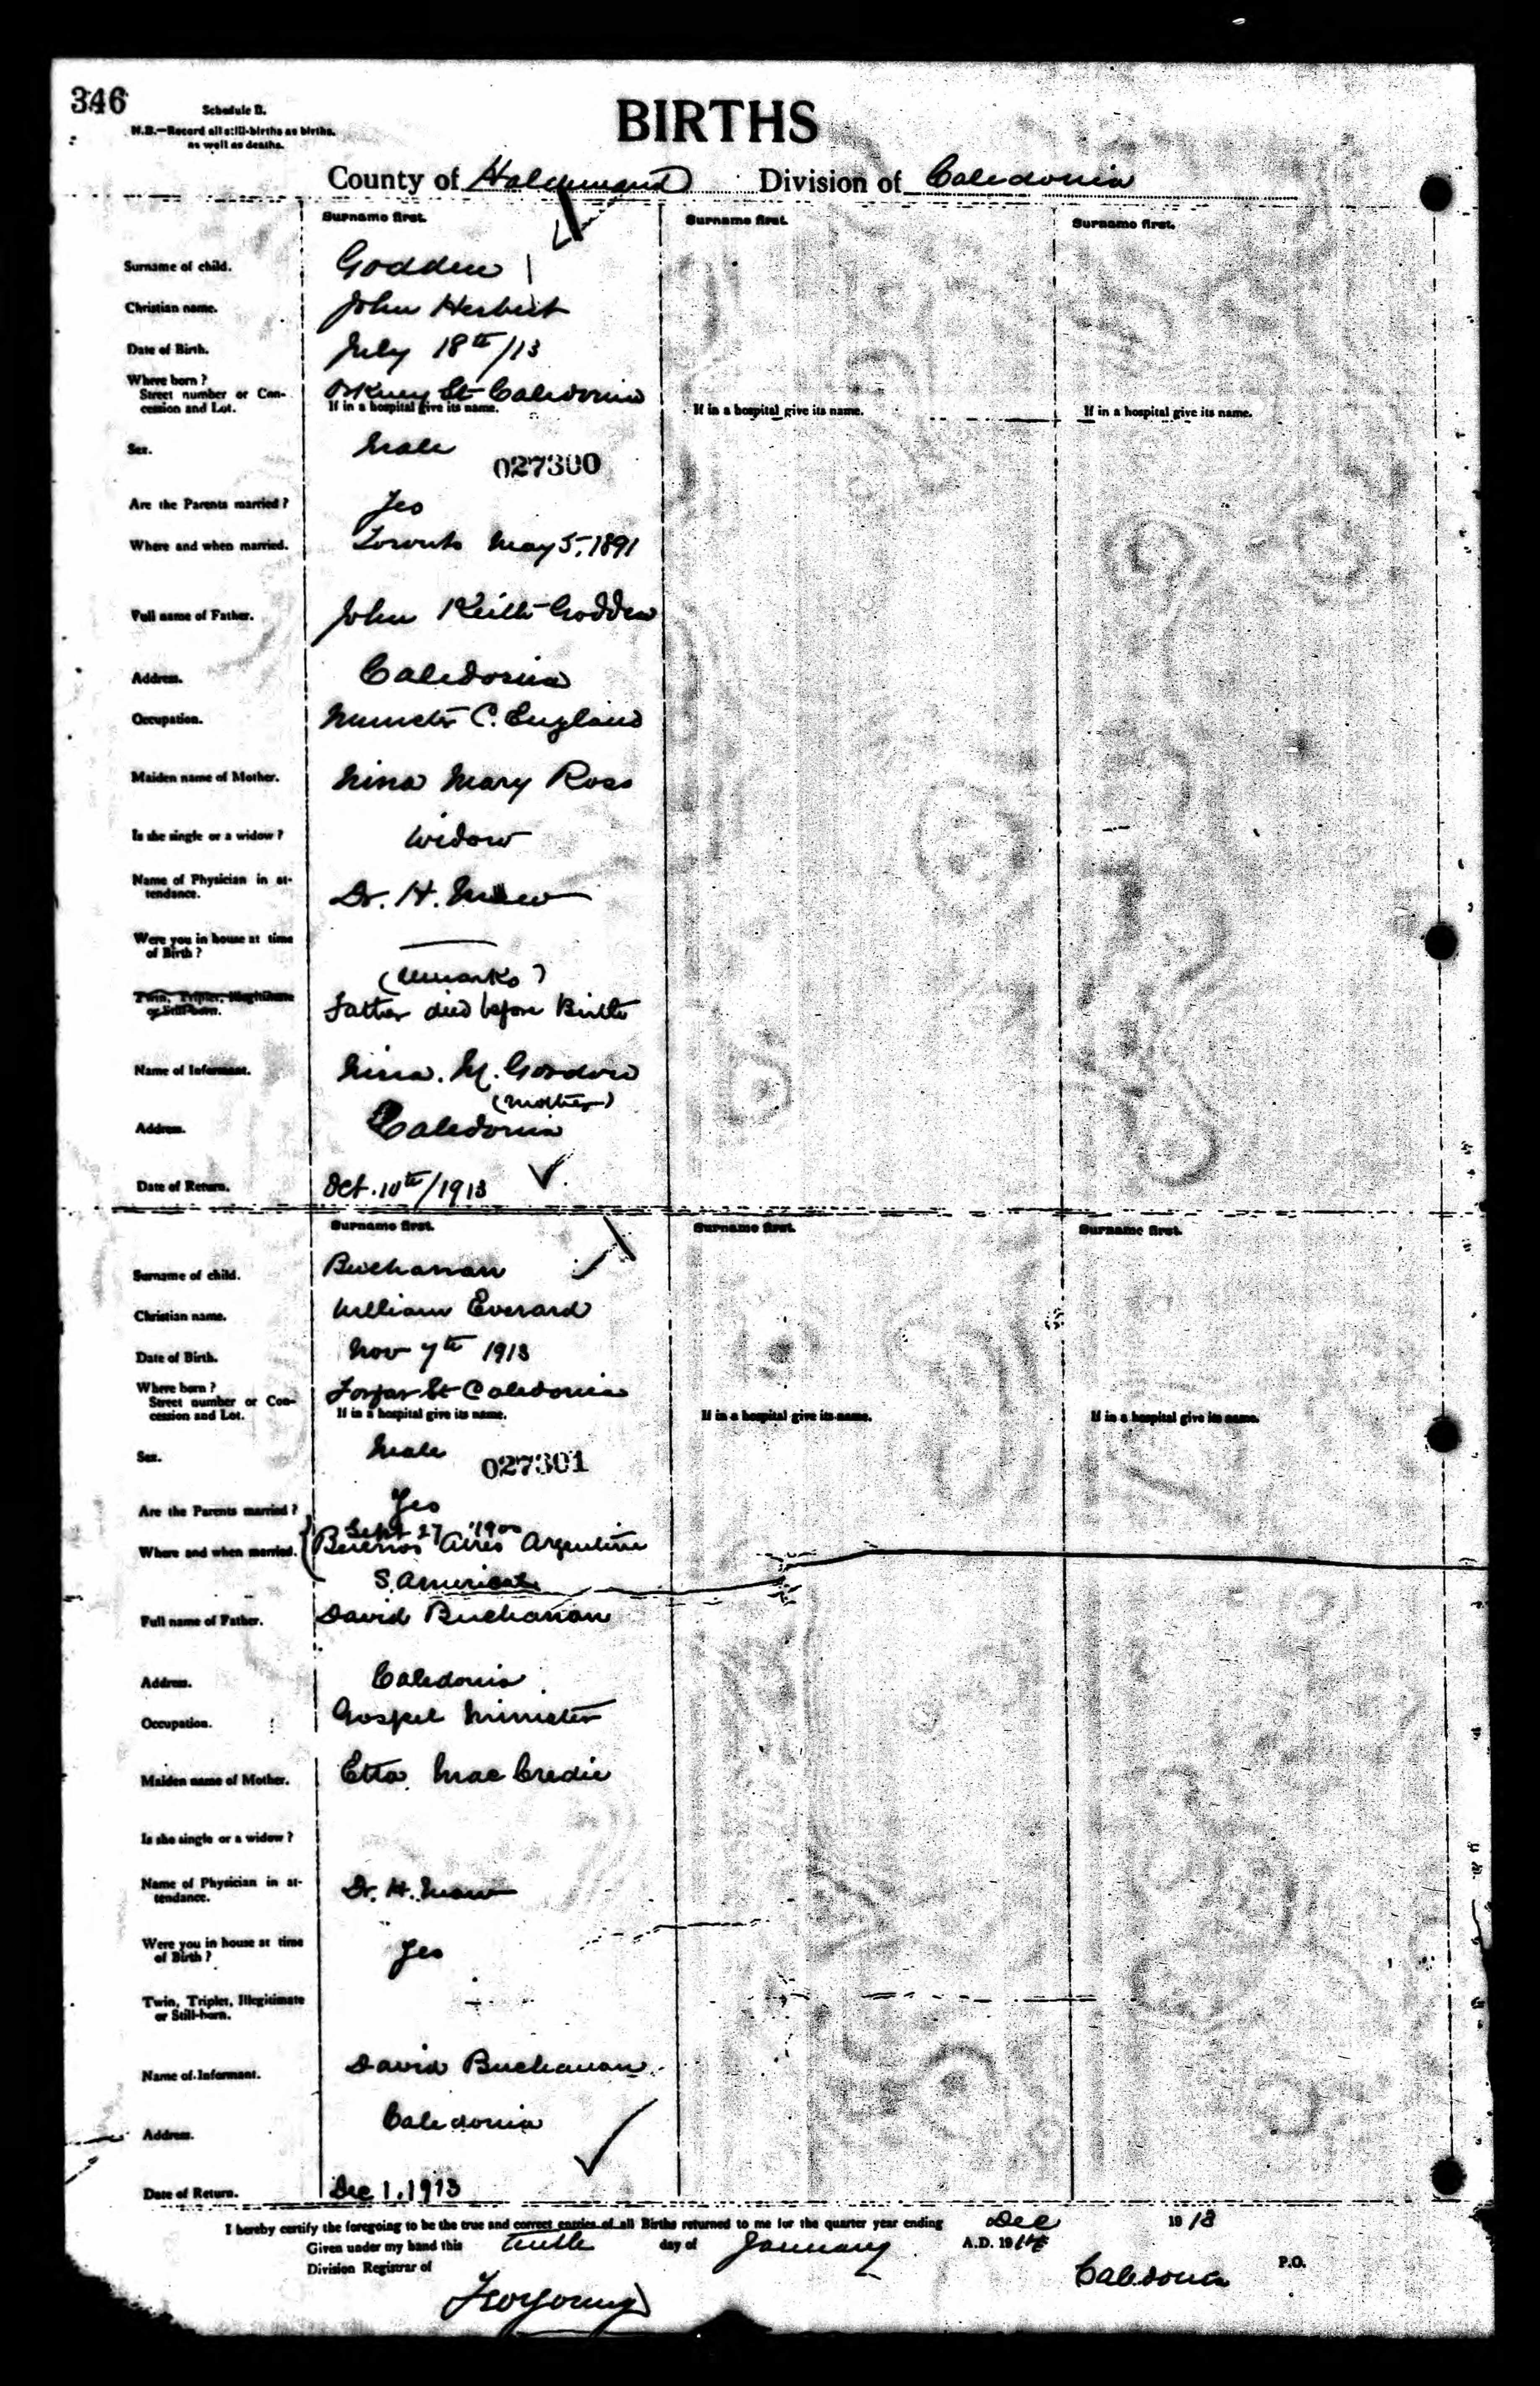 346
Schedule B.
N.B.—Record all still-births as births,
as well as deaths.
BIRTHS
County of Haldimand Division of Caledonia
Surname first. Surname first. Surname first.
Surname of child. Godden
Christian name. John Herbert
Date of Birth. July 18th/13
Where born?
Street number or Con- Orkney St Caledonia
cession and Lot. If in a hospital give its name. If in a hospital give its name. If in a hospital give its name.
Sex. Male 027300
Are the Parents married? Yes
Where and when married. Toronto May 5, 1891
Full name of Father. John Keith Godden
Address. Caledonia
Occupation. Minister C. England
Maiden name of Mother. Nina Mary Ross
Is she single or a widow? Widow
Name of Physician in at-
tendance. Dr. H.
Were you in house at time
of Birth? —
(Remarks)
Twin, Triplet, Illegitimate
or Still-born. Father died before Birth
Name of Informant. Nina. M.
(Mother)
Address. Caledonia
Date of Return. Oct. 10th/1913
Surname first. Surname first. Surname first.
Surname of child. Buchanan
Christian name. William Everard
Date of Birth. Nov 7th 1913
Where born?
Street number or Con- Forfar St Caledonia
cession and Lot. If in a hospital give its name. If in a hospital give its name. If in a hospital give its name.
Sex. Male 027301
Are the Parents married? Yes
Sept 27 1900
Where and when married. Buenos Aires Argentine
S. America
Full name of Father. David Buchanan
Address. Caledonia
Occupation. Gospel Minister
Maiden name of Mother. Etta MacCredie
Is she single or a widow?
Name of Physician in at-
tendance. Dr. H.
Were you in house at time
of Birth? Yes
Twin, Triplet, Illegitimate
or Still-born. —
Name of Informant. David Buchanan
Address. Caledonia
Date of Return. Dec 1, 1913
I hereby certify the foregoing to be the true and correct entries of all Births returned to me for the quarter year ending Dec 1913
Given under my hand this day of January A.D. 1914
Division Registrar of Caledonia P.O.